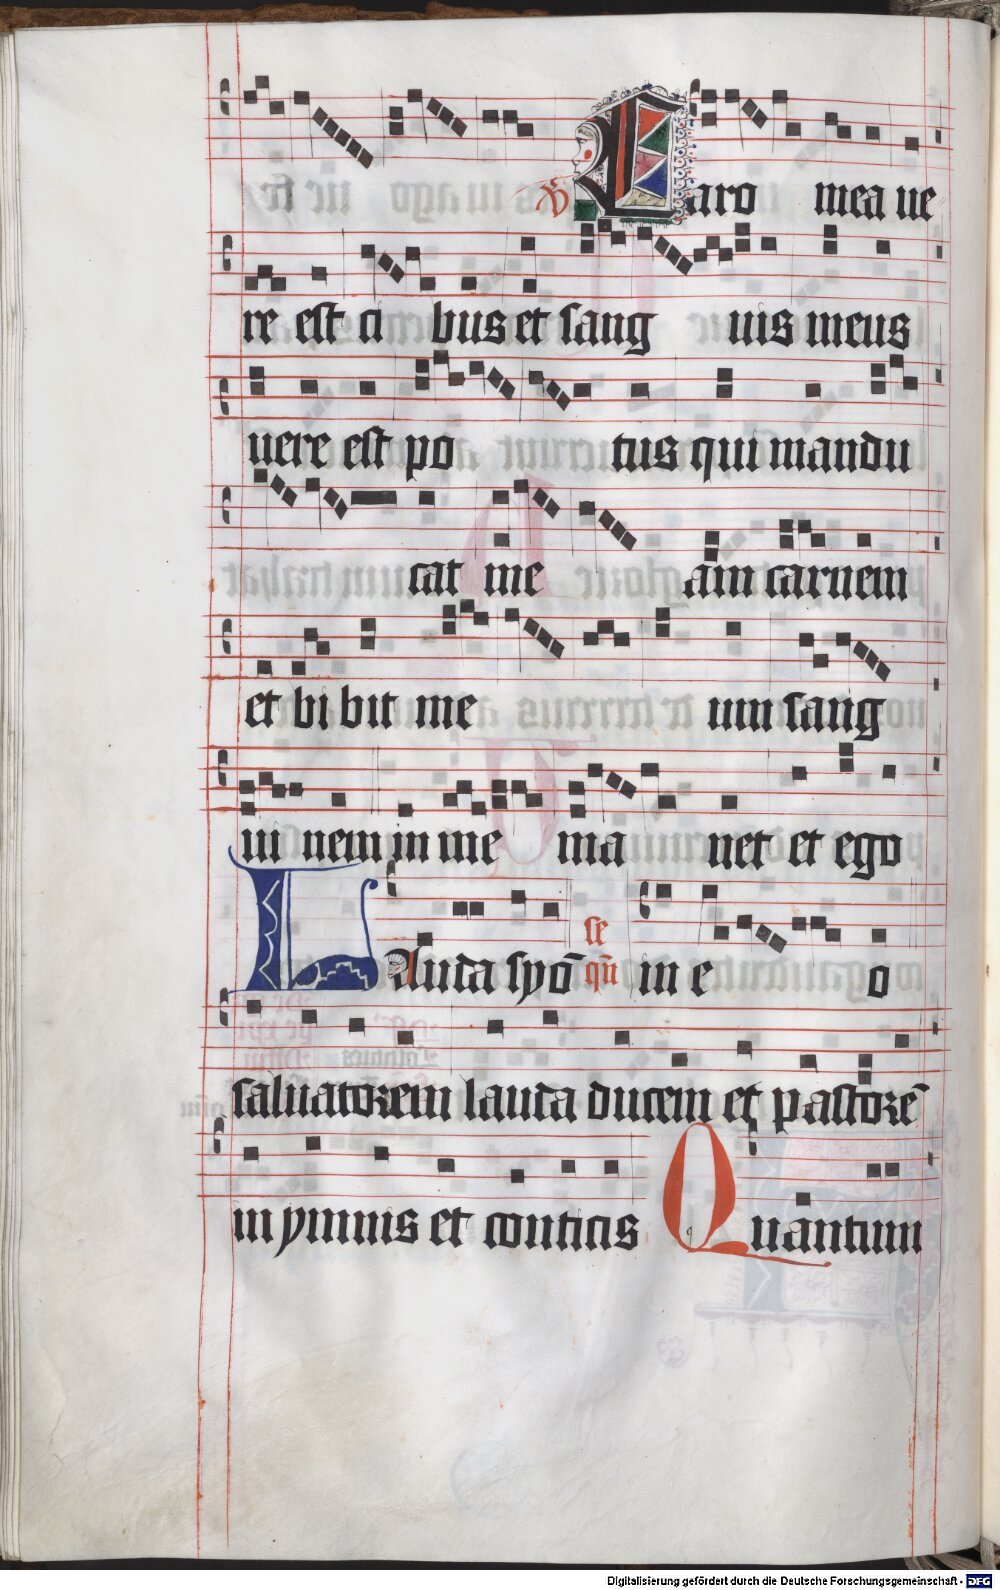 v̄ Caro mea ue
re est ci bus et sang uis meus
uere est po tus qui mandu
cat me am carnem
et bi bit me um sang
ui nem in me ma net et ego
Lauda syō se qūn in e o
saluatorem lauda ducem et pastorē
in ymnis et conticis Quantum
Digitalisierung gefördert durch die Deutsche Forschungsgemeinschaft - DFG